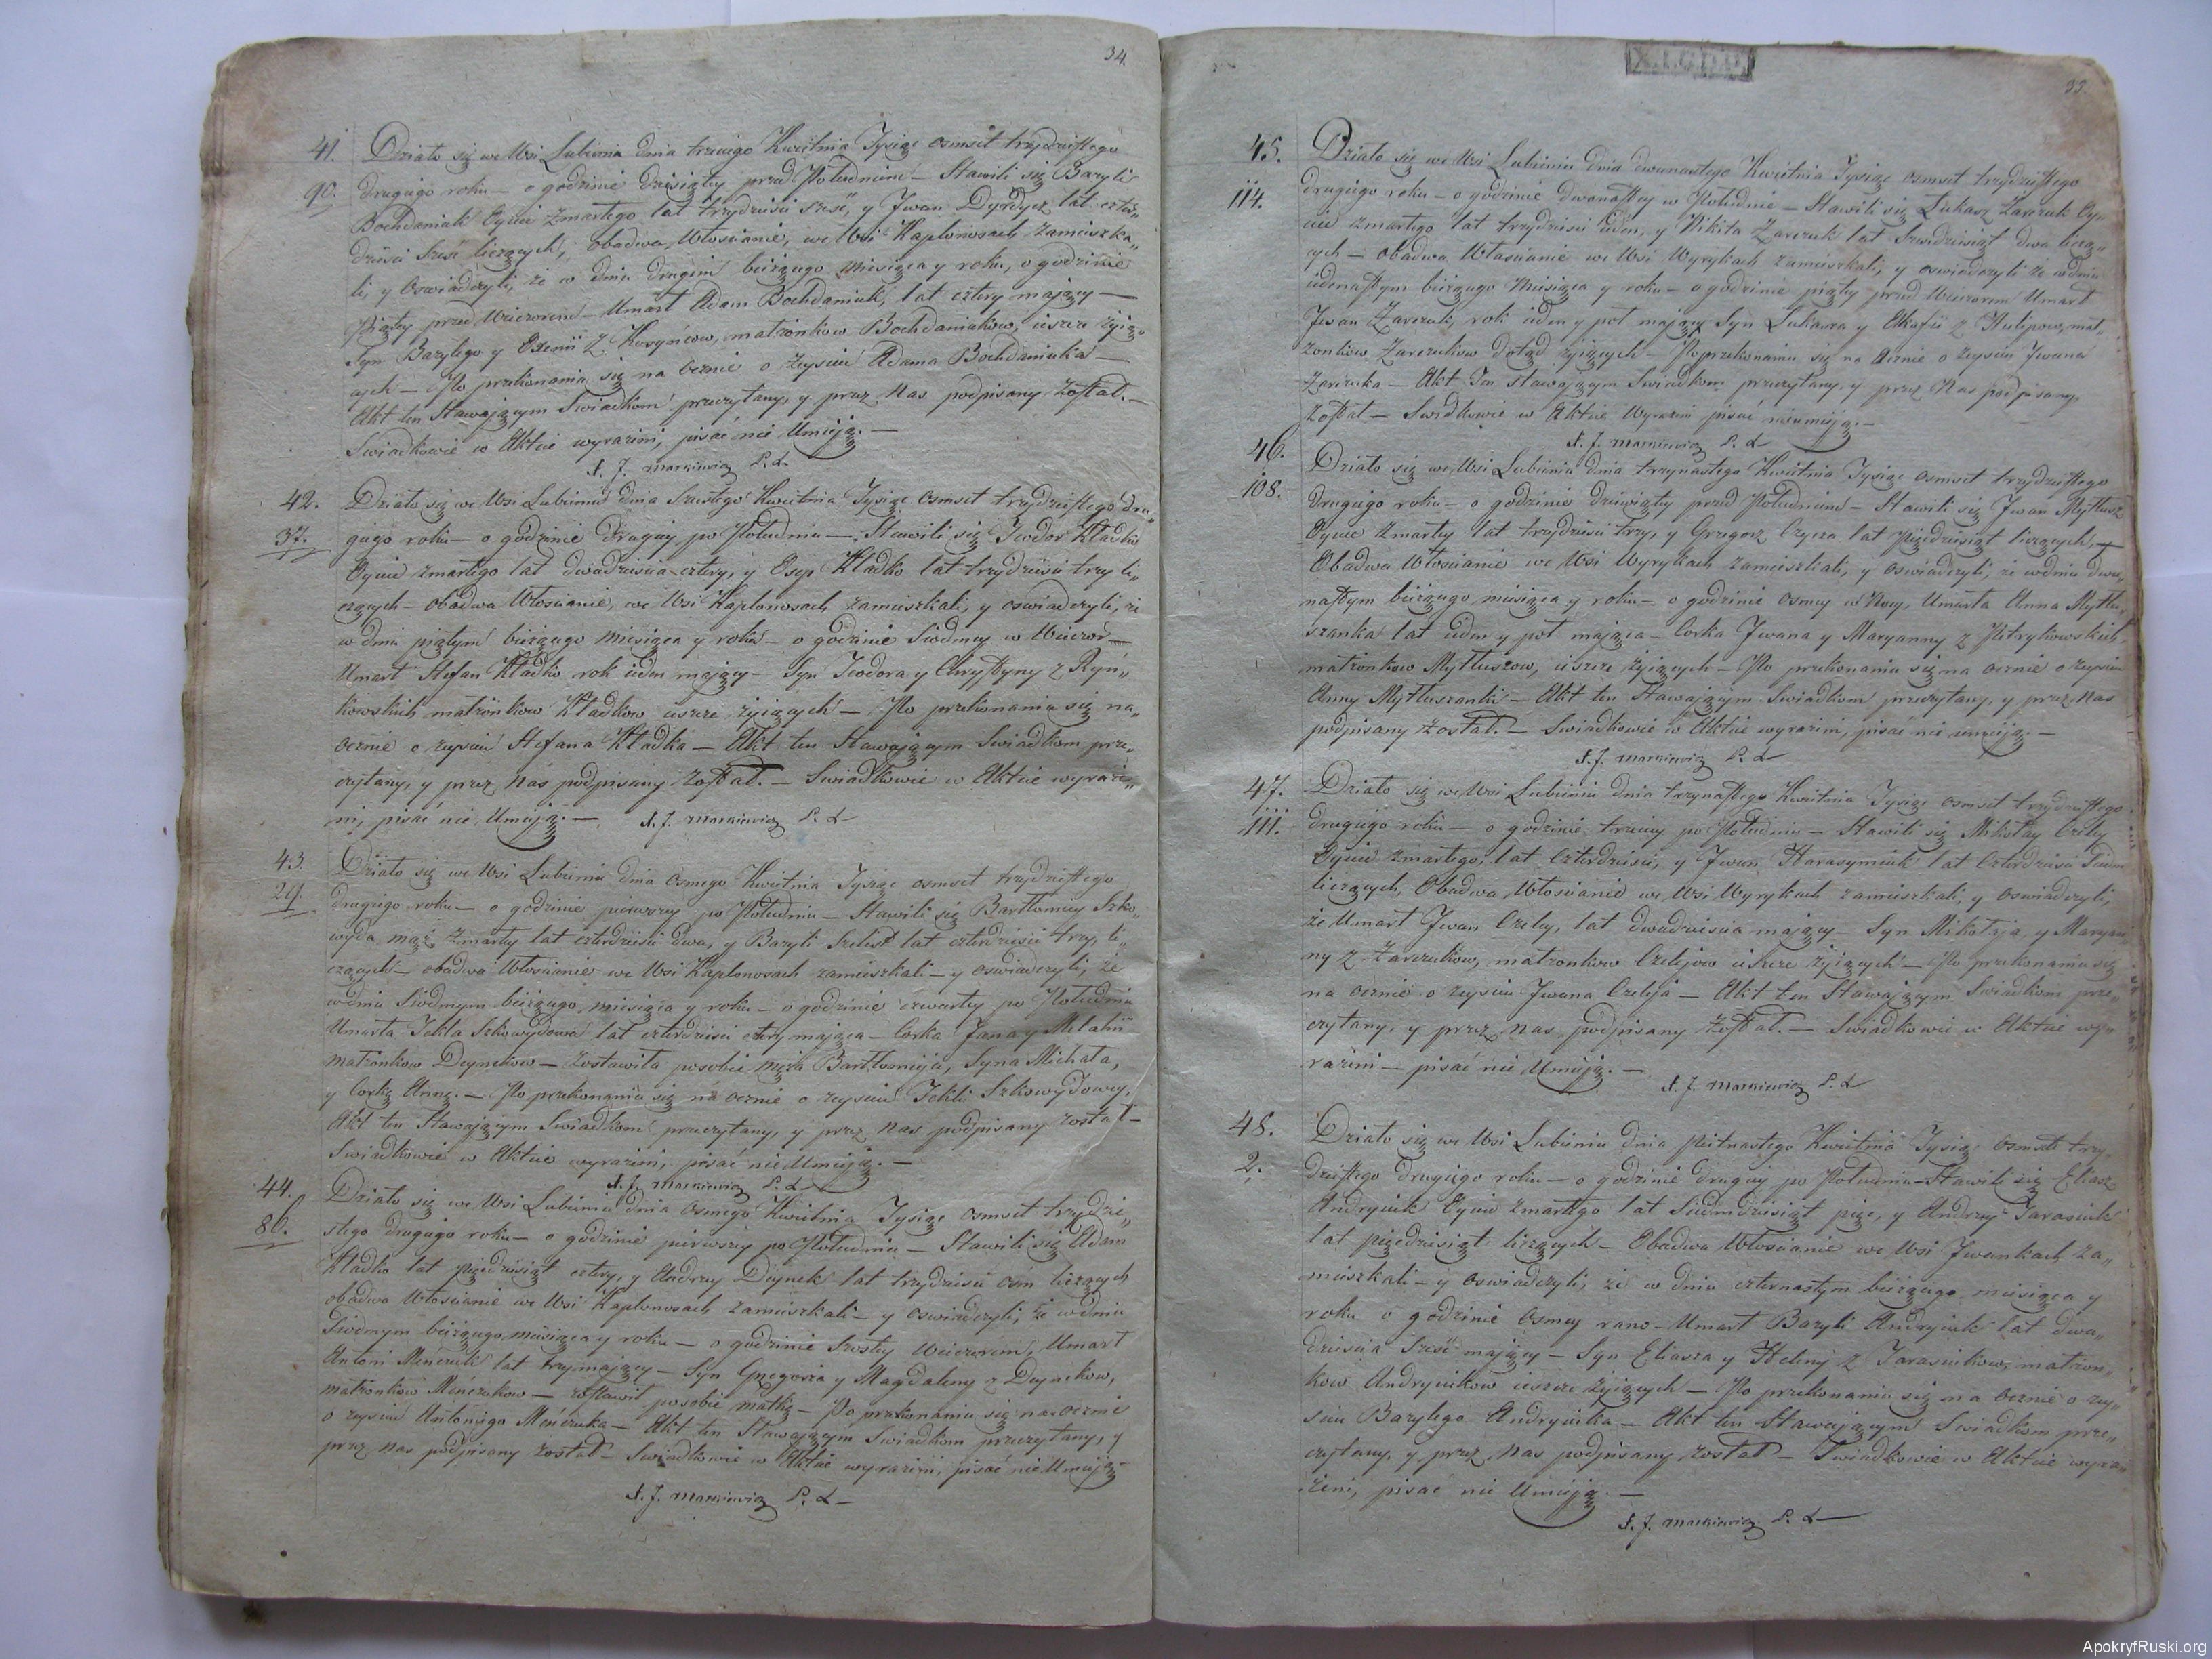 34.
41.
90.
Działo się we Wsi Lubieniu dnia trzeciego Kwietnia Tysiąc osmset trzydziestego
drugiego roku — o godzinie dziesiątey przed Południem — Stawili się Bazyli
Bochdaniuk Oyciec zmarłego lat trzydzieści sześć, y Jwan Dyrdycz lat czter„
dzieści sześć liczących, obadwa Włościanie, we Wsi Kaplonosach zamieszka„
li, y oswiadczyli, że w dniu drugim bieżącego miesiąca y roku, o godzinie
piątey przed Wieczorem — Umarł Adam Bochdaniuk, lat cztery maiący —
Syn Bazylego y Exenii z Kosyńcow, małżonkow Bochdaniukow, ieszcze żyią„
cych — Po przekonaniu się na ocznie o zeysciu Adama Bochdaniuka —
Akt ten Stawaiącym Swiadkom przeczytany, y przez Nas podpisany Został. —
Swiadkowie w Akcie wyrażeni, pisać nie Umieią. —
X. J. Markiewicz P. L.
42.
37.
Działo się we Wsi Lubieniu dnia Szostego Kwietnia Tysiąc osmset trzydziestego dru„
giego roku — o godzinie drugiey po Południu — Stawili się Teodor Kładko
Oyciec zmarłego lat dwadzieścia cztery, y Osyp Kładko lat trzydzieści trzy li„
czących — obadwa Włościanie, we Wsi Kaplonosach zamieszkali, y oswiadczyli, że
w dniu piątym bieżącego miesiąca y roku — o godzinie siodmey w Wieczor —
Umarł Stefan Kładko rok ieden maiący — Syn Teodora y Chrystyny z Ryń„
kowskich małżonkow Kładkow ieszcze żyiących — Po przekonaniu się na„
ocznie o zeysciu Stefana Kładka — Akt ten Stawaiącym Swiadkom prze„
czytany, y przez Nas podpisany Został. — Swiadkowie w Akcie wyraże„
ni, pisać nie Umieią. — X. J. Markiewicz P. L
43.
29.
Działo się we Wsi Lubieniu dnia osmego Kwietnia Tysiąc osmset trzydziestego
drugiego roku — o godzinie pierwszey po Południu — Stawili się Bartłomiey Szko„
wyda mąż zmarłey lat czterdzieści dwa, y Bazyli Szelest lat czterdzieści trzy, li„
czących — obadwa Włościanie we Wsi Kaplonosach zamieszkali — y oswiadczyli, że
w dniu siodmym bieżącego miesiąca y roku — o godzinie czwartey po Południu
Umarła Tekla Szkowydowa lat czterdzieści cztery maiąca — Corka Jana y Melanii
małżonkow Deynekow — zostawiła po sobie męża Bartłomieja, Syna Michała,
y Corkę Annę. — Po przekonaniu się na ocznie o zeysciu Tekli Szkowydowey,
Akt ten Stawaiącym Swiadkom przeczytany, y przez Nas podpisany Został —
Swiadkowie w Akcie wyrażeni, pisać nie Umieią. —
X. J. Markiewicz P. L
44.
86.
Działo się we Wsi Lubieniu dnia osmego Kwietnia Tysiąc osmset trzydzie„
stego drugiego roku — o godzinie pierwszey po Południu — Stawili się Adam
Kładko lat pięćdziesiąt cztery, y Andrzey Deynek lat trzydzieści osm liczących
obadwa Włościanie we Wsi Kaplonosach zamieszkali — y oswiadczyli, że w dniu
siodmym bieżącego miesiąca y roku — o godzinie szostey Wieczorem, Umarł
Antoni Meńczuk lat trzy maiący — Syn Gregorza y Magdaleny z Deynekow,
małżonkow Meńczukow — zostawił po sobie matkę — Po przekonaniu się na ocznie
o zeysciu Antoniego Meńczuka — Akt ten Stawaiącym Swiadkom przeczytany, y
przez Nas podpisany Został — Swiadkowie w Akcie wyrażeni, pisać nie Umieią —
X. J. Markiewicz P. L —
35.
45.
114.
Działo się we Wsi Lubieniu dnia dwunastego Kwietnia Tysiąc osmset trzydziestego
drugiego roku — o godzinie dwunastey w Południe — Stawili się Łukasz Zarczuk Oy„
ciec zmarłego lat trzydzieści ieden, y Nikita Zarczuk lat sześćdziesiąt dwa licz„
cych — obadwa Włościanie we Wsi Wyrykach zamieszkali, y oswiadczyli że w dniu
iedenastym bieżącego Miesiąca y roku — o godzinie piątey przed Wieczorem Umarł
Jwan Zarczuk, rok ieden y poł maiący Syn Łukasza y Akafii z Hulipow, mał„
żonkow Zarczukow dotąd żyiących — Po przekonaniu się na ocznie o zeysciu Jwana
Zarczuka — Akt Ten stawaiącym Swiadkom przeczytany, y przez Nas podpisany
Został — Swidkowie w Akcie Wyrażeni pisać nieumieią. —
X. J. Markiewicz P. L
46.
108.
Działo się we Wsi Lubieniu dnia trzynastego Kwietnia Tysiąc osmset trzydziestego
drugiego roku — o godzinie dziewiątey przed Południem — Stawili się Jwan Mytłusz
Oyciec zmarłey lat trzydzieści trzy, y Grzegorz Czycza lat pięćdziesiąt liczących, —
Obadwa Włościanie we Wsi Wyrykach zamieszkali, y oswiadczyli, że w dniu dwu„
nastym bieżącego miesiąca y roku — o godzinie osmey w Nocy, Umarła Anna Mytłu„
szanka lat ieden y poł maiąca — Corka Jwana y Maryanny z Piotrykowskich
małżonkow Mytłuszow, ieszcze żyiących — Po przekonaniu się na ocznie o zeysciu
Anny Mytłuszanki — Akt ten Stawaiącym Swiadkom przeczytany, y przez Nas
podpisany Został. — Swiadkowie w Akcie wyrażeni, pisać nie umieią. —
X. J. Markiewicz P. L
47.
111.
Działo się we Wsi Lubieniu dnia trzynastego Kwietnia Tysiąc osmset trzydziestego
drugiego roku — o godzinie trzeciey po Południu — Stawili się Mikołay Czeley
Oyciec zmarłego, lat czterdzieści, y Jwan Harasymiuk lat czterdzieści siedm
liczących, Obadwa Włościanie we Wsi Wyrykach zamieszkali, y oswiadczyli,
że Umarł Jwan Czeley, lat dwadzieścia maiący — Syn Mikołaja, y Maryan„
ny z Zarczukow, małżonkow Czelejow ieszcze żyiących — Po przekonaniu się
na ocznie o zeysciu Jwana Czeleja — Akt ten Stawaiącym Swiadkom prze„
czytany, y przez Nas podpisany Został. — Swiadkowie w Akcie wy„
rażeni — pisać nie Umieią. —
X. J. Markiewicz P. L
48.
2.
Działo się we Wsi Lubieniu dnia piętnastego Kwietnia Tysiąc osmset trzy„
dziestego drugiego roku — o godzinie drugiey po Południu — Stawili się Eliasz
Andryciuk Oyciec zmarłego lat siedmdziesiąt pięć, y Andrzey Tarasiuk
lat pięćdziesiąt liczących — Obadwa Włościanie we Wsi Jwankach za„
mieszkali — y oswiadczyli, że w dniu czternastym bieżącego miesiąca y
roku o godzinie osmey rano — Umarł Bazyli Andryciuk lat dwa„
dzieścia sześć maiący — Syn Eliasza y Heleny z Tarasiukow, małżon„
kow Andryciukow ieszcze żyiących — Po przekonaniu się na ocznie o zey„
sciu Bazylego Andryciuka — Akt ten Stawaiącym Swiadkom prze„
czytany, y przez Nas podpisany Został — Swiadkowie w Akcie wyra„
żeni, pisać nie Umieią. —
X. J. Markiewicz P. L —
ApokryfRuski.org